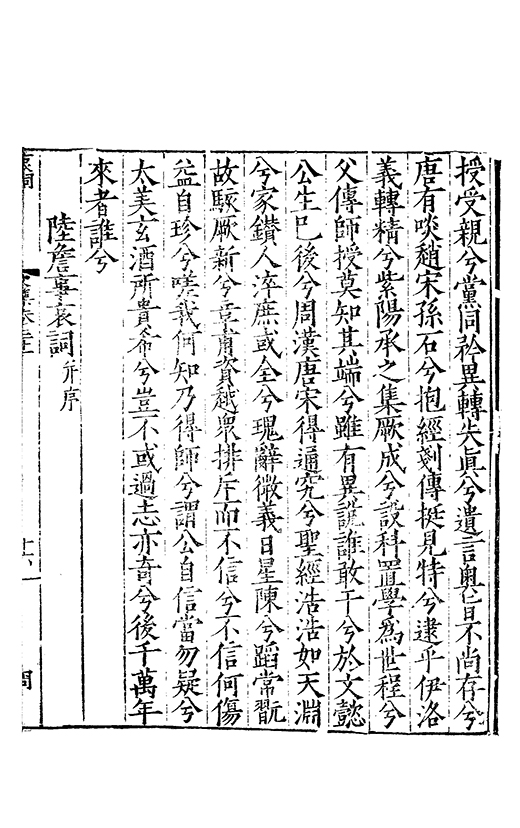 授受親兮黨同矜異轉失眞兮遺言奧旨不尚存兮
唐有啖趙宋孫石兮抱經剗傳挺見特兮逮乎伊洛
義轉精兮紫陽承之集厥成兮設科置學爲世程兮
父傳師授莫知其端兮雖有異說誰敢干兮於文懿
公生巳後兮周漢唐宋得遍究兮聖經浩浩如天淵
兮家鑽人淬庶或全兮瑰辭微義日星陳兮蹈常翫
故駭厥新兮章甫資越衆排斥而不信兮不信何傷
益自珍兮嗟哉何知乃得師兮謂公自信當勿疑兮
太美玄酒所貴希兮豈不或過志亦奇兮後千萬年
來者誰兮
陸詹事哀詞并序